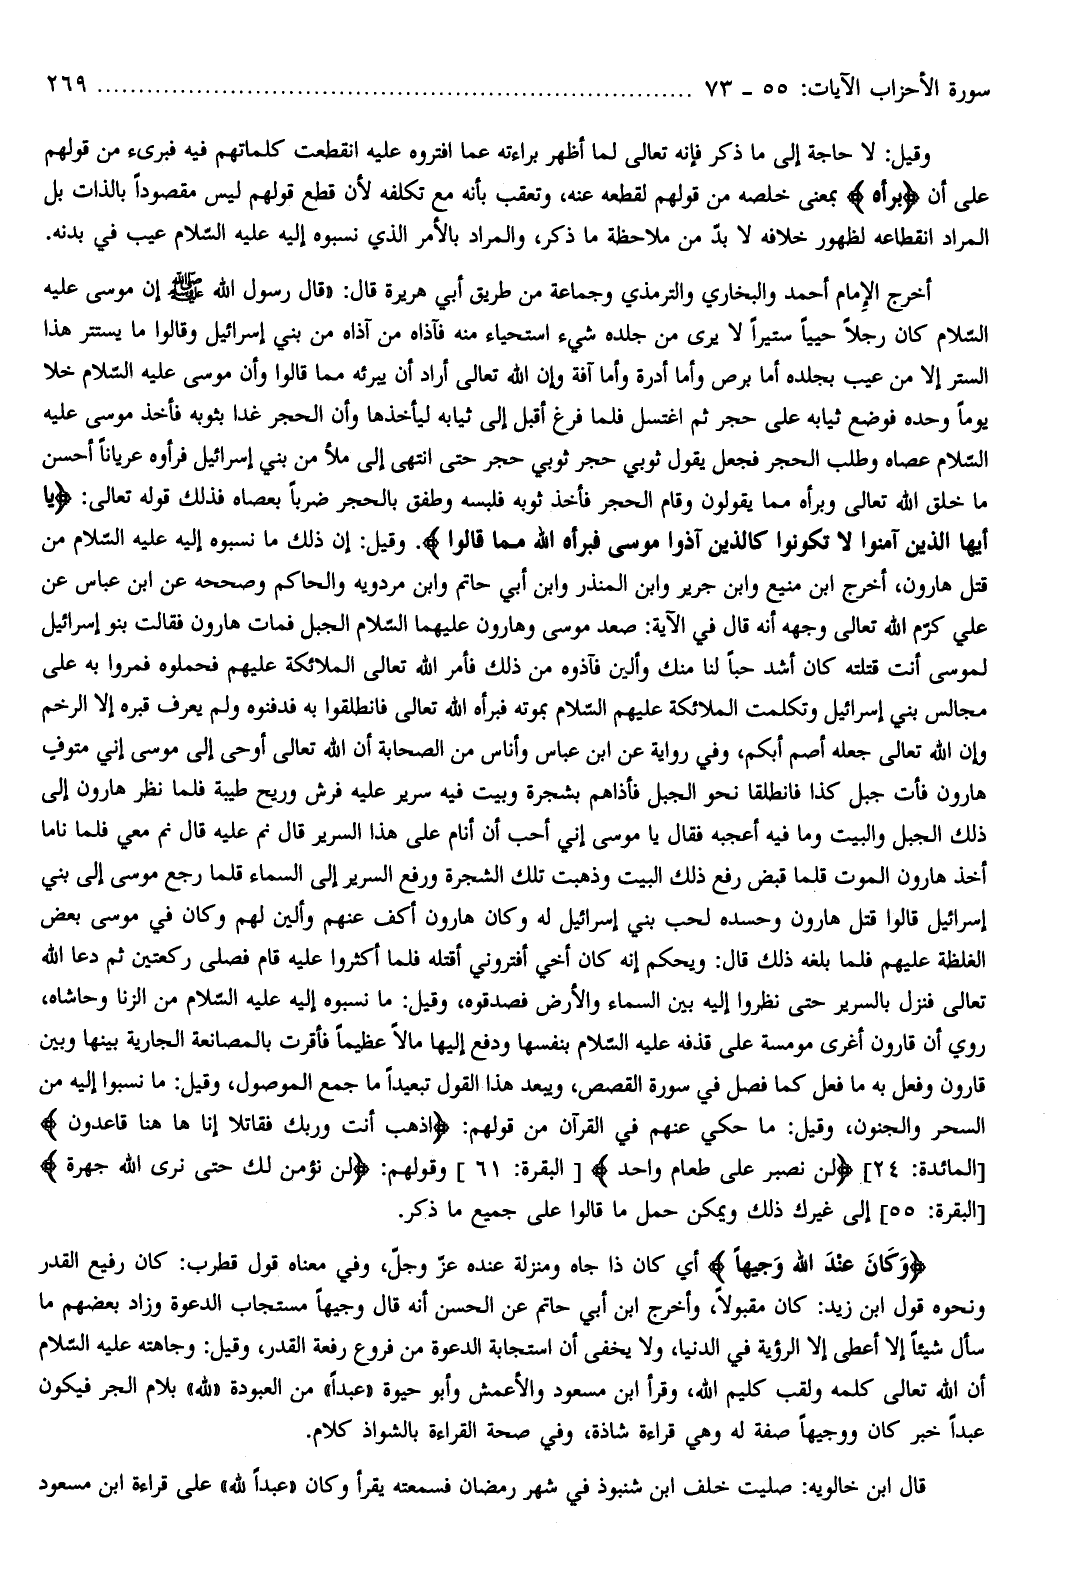 سورة الأحزاب الآيات: ٥٥ ـ ٧٣ ........................................................................ ٢٦٩
وقيل: لا حاجة إلى ما ذكر فإنه تعالى لما أظهر براءته عما افتروه عليه انقطعت كلماتهم فيه فبرىء من قولهم
على أن ﴿برأه﴾ بمعنى خلصه من قولهم لقطعه عنه، وتعقب بأنه مع تكلفه لأن قطع قولهم ليس مقصوداً بالذات بل
المراد انقطاعه لظهور خلافه لا بدّ من ملاحظة ما ذكر، والمراد بالأمر الذي نسبوه إليه عليه السّلام عيب في بدنه.
أخرج الإمام أحمد والبخاري والترمذي وجماعة من طريق أبي هريرة قال: «قال رسول الله ﷺ إن موسى عليه
السّلام كان رجلاً حيياً ستيراً لا يرى من جلده شيء استحياء منه فآذاه من آذاه من بني إسرائيل وقالوا ما يستتر هذا
الستر إلا من عيب بجلده أما برص وأما أدرة وأما آفة وإن الله تعالى أراد أن يبرئه مما قالوا وأن موسى عليه السّلام خلا
يوماً وحده فوضع ثيابه على حجر ثم اغتسل فلما فرغ أقبل إلى ثيابه ليأخذها وأن الحجر غدا بثوبه فأخذ موسى عليه
السّلام عصاه وطلب الحجر فجعل يقول ثوبي حجر ثوبي حجر حتى انتهى إلى ملأ من بني إسرائيل فرأوه عرياناً أحسن
ما خلق الله تعالى وبرأه مما يقولون وقام الحجر فأخذ ثوبه فلبسه وطفق بالحجر ضرباً بعصاه فذلك قوله تعالى: ﴿يا
أيها الذين آمنوا لا تكونوا كالذين آذوا موسى فبرأه الله مما قالوا﴾. وقيل: إن ذلك ما نسبوه إليه عليه السّلام من
قتل هارون، أخرج ابن منيع وابن جرير وابن المنذر وابن أبي حاتم وابن مردويه والحاكم وصححه عن ابن عباس عن
علي كرّم الله تعالى وجهه أنه قال في الآية: صعد موسى وهارون عليهما السّلام الجبل فمات هارون فقالت بنو إسرائيل
لموسى أنت قتلته كان أشد حباً لنا منك وألين فآذوه من ذلك فأمر الله تعالى الملائكة عليهم فحملوه فمروا به على
مجالس بني إسرائيل وتكلمت الملائكة عليهم السّلام بموته فبرأه الله تعالى فانطلقوا به فدفنوه ولم يعرف قبره إلا الرخم
وإن الله تعالى جعله أصم أبكم، وفي رواية عن ابن عباس وأناس من الصحابة أن الله تعالى أوحى إلى موسى إني متوفٍ
هارون فأت جبل كذا فانطلقا نحو الجبل فأذاهم بشجرة وبيت فيه سرير عليه فرش وريح طيبة فلما نظر هارون إلى
ذلك الجبل والبيت وما فيه أعجبه فقال يا موسى إني أحب أن أنام على هذا السرير قال نم عليه قال نم معي فلما ناما
أخذ هارون الموت قلما قبض رفع ذلك البيت وذهبت تلك الشجرة ورفع السرير إلى السماء قلما رجع موسى إلى بني
إسرائيل قالوا قتل هارون وحسده لحب بني إسرائيل له وكان هارون أكف عنهم وألين لهم وكان في موسى بعض
الغلظة عليهم فلما بلغه ذلك قال: ويحكم إنه كان أخي أفتروني أقتله فلما أكثروا عليه قام فصلى ركعتين ثم دعا الله
تعالى فنزل بالسرير حتى نظروا إليه بين السماء والأرض فصدقوه، وقيل: ما نسبوه إليه عليه السّلام من الزنا وحاشاه،
روي أن قارون أغرى مومسة على قذفه عليه السّلام بنفسها ودفع إليها مالاً عظيماً فأقرت بالمصانعة الجارية بينها وبين
قارون وفعل به ما فعل كما فصل في سورة القصص، ويبعد هذا القول تبعيداً ما جمع الموصول، وقيل: ما نسبوا إليه من
السحر والجنون، وقيل: ما حكي عنهم في القرآن من قولهم: ﴿اذهب أنت وربك فقاتلا إنا ها هنا قاعدون﴾
[المائدة: ٢٤] ﴿لن نصبر على طعام واحد﴾ [ البقرة: ٦١ ] وقولهم: ﴿لن نؤمن لك حتى نرى الله جهرة﴾
[البقرة: ٥٥] إلى غيرك ذلك ويمكن حمل ما قالوا على جميع ما ذكر.
﴿وَكَانَ عنْدَ الله وَجيهاً﴾ أي كان ذا جاه ومنزلة عنده عزّ وجلّ، وفي معناه قول قطرب: كان رفيع القدر
ونحوه قول ابن زيد: كان مقبولاً، وأخرج ابن أبي حاتم عن الحسن أنه قال وجيهاً مستجاب الدعوة وزاد بعضهم ما
سأل شيئاً إلا أعطى إلا الرؤية في الدنيا، ولا يخفى أن استجابة الدعوة من فروع رفعة القدر، وقيل: وجاهته عليه السّلام
أن الله تعالى كلمه ولقب كليم الله، وقرأ ابن مسعود والأعمش وأبو حيوة «عبداً» من العبودة «لله» بلام الجر فيكون
عبداً خبر كان ووجيهاً صفة له وهي قراءة شاذة، وفي صحة القراءة بالشواذ كلام.
قال ابن خالويه: صليت خلف ابن شنبوذ في شهر رمضان فسمعته يقرأ وكان «عبداً لله» على قراءة ابن مسعود